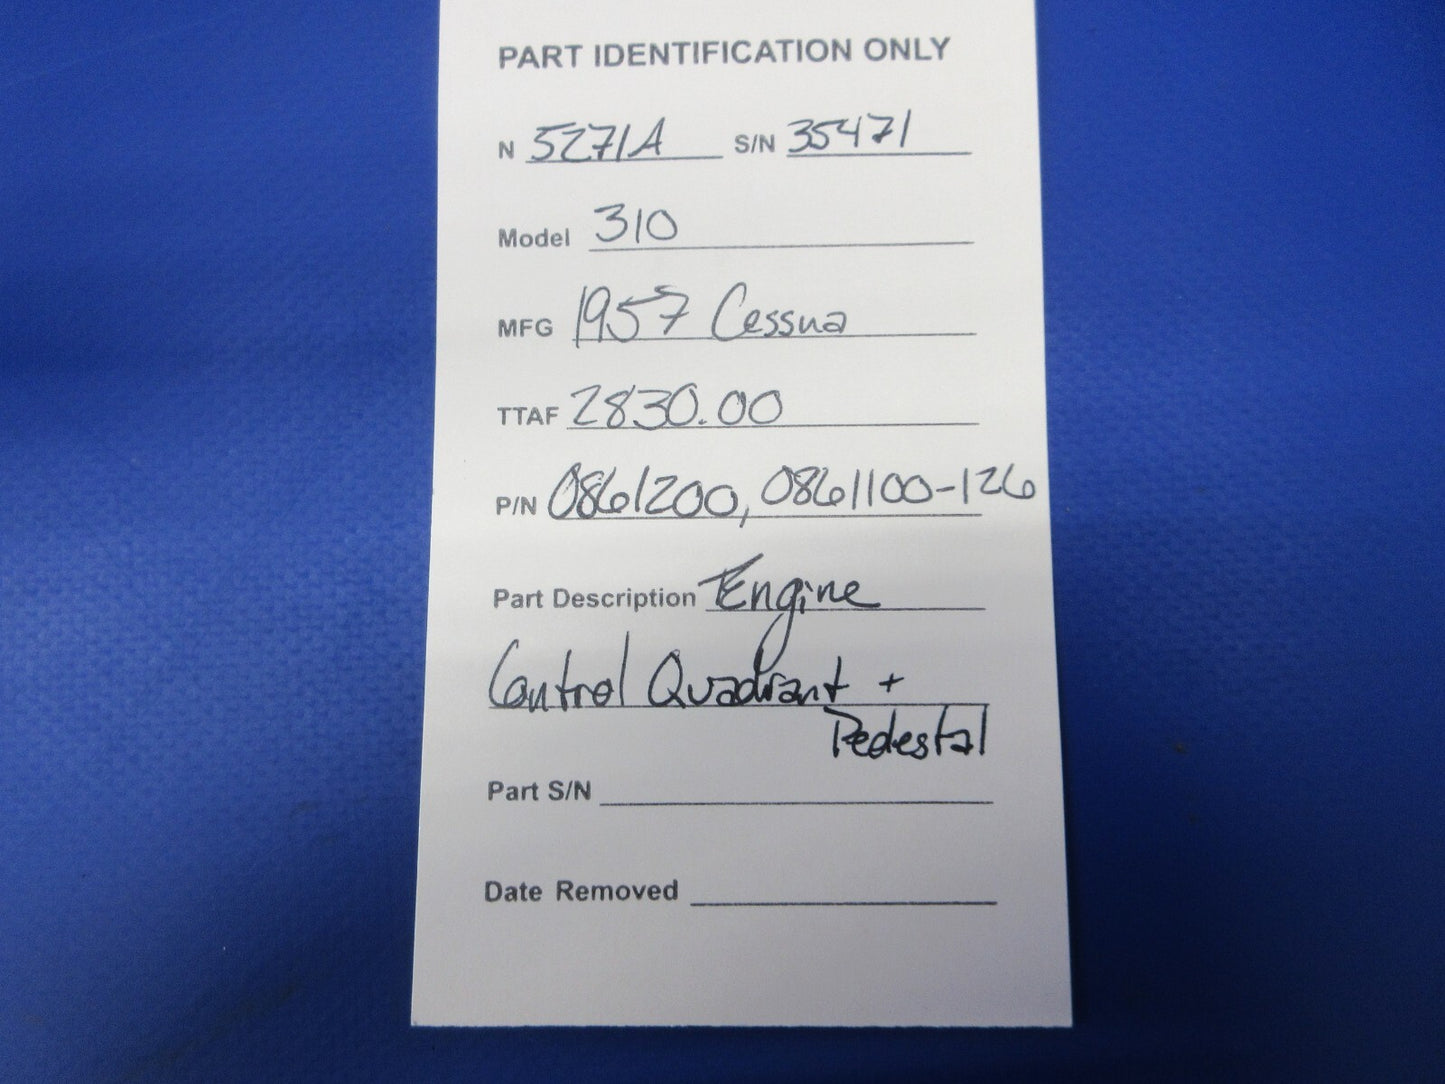 PART IDENTIFICATION ONLY
N 5271A S/N 35471
Model 310
MFG 1957 Cessna
TTAF 2830.00
P/N 0861200, 0861100-126
Part Description Engine
Control Quadrant +
Pedestal
Part S/N
Date Removed